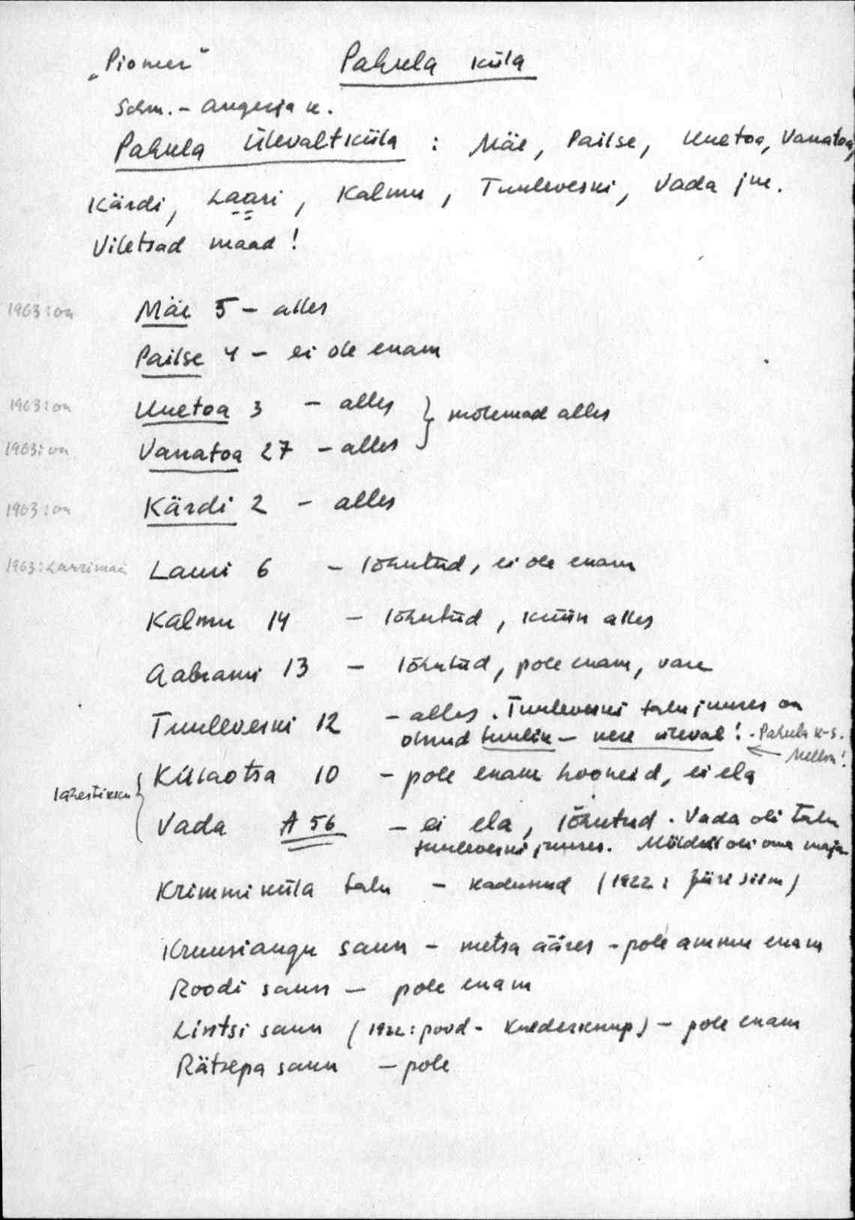 „Pioneer" Pahula küla
Schm. - Angerja k.
Pahula Ülevaltküla : Mäe, Pailse, Uuetoa, Vanatoa,
Kärdi, Lauri, Kalmu, Tuuleveski, Vada jne.
Viletsad maad!
1963: on Mäe 5 - alles
Pailse 4 - ei ole enam
1963: on Uuetoa 3 - alles } mõlemad alles
1963: on Vanatoa 27 - alles
1963: on Kärdi 2 - alles
1963: Laurimäe Lauri 6 - lõhutud, ei ole enam
Kalmu 14 - lõhutud, küün alles
Aabrami 13 - lõhutud, pole enam, vare
Tuuleveski 12 - alles. Tuuleveski talu juures on
olnud tuulik - kere üleval! - Pahula k-s.
Küllaotsa 10 - pole enam hooneid, ei ela
lähestikku { Vada A 56 - ei ela, lõhutud. Vada oli talu
tuuleveski juures. Möldril oli oma maja
Krimmiküla talu - kadunud (1922: Jüri Siim)
Kruusiaugu saun - metsa ääres - pole ammu enam
Roodi saun - pole enam
Lintsi saun (1922: pood - Kulderknup) - pole enam
Rätsepa saun - pole